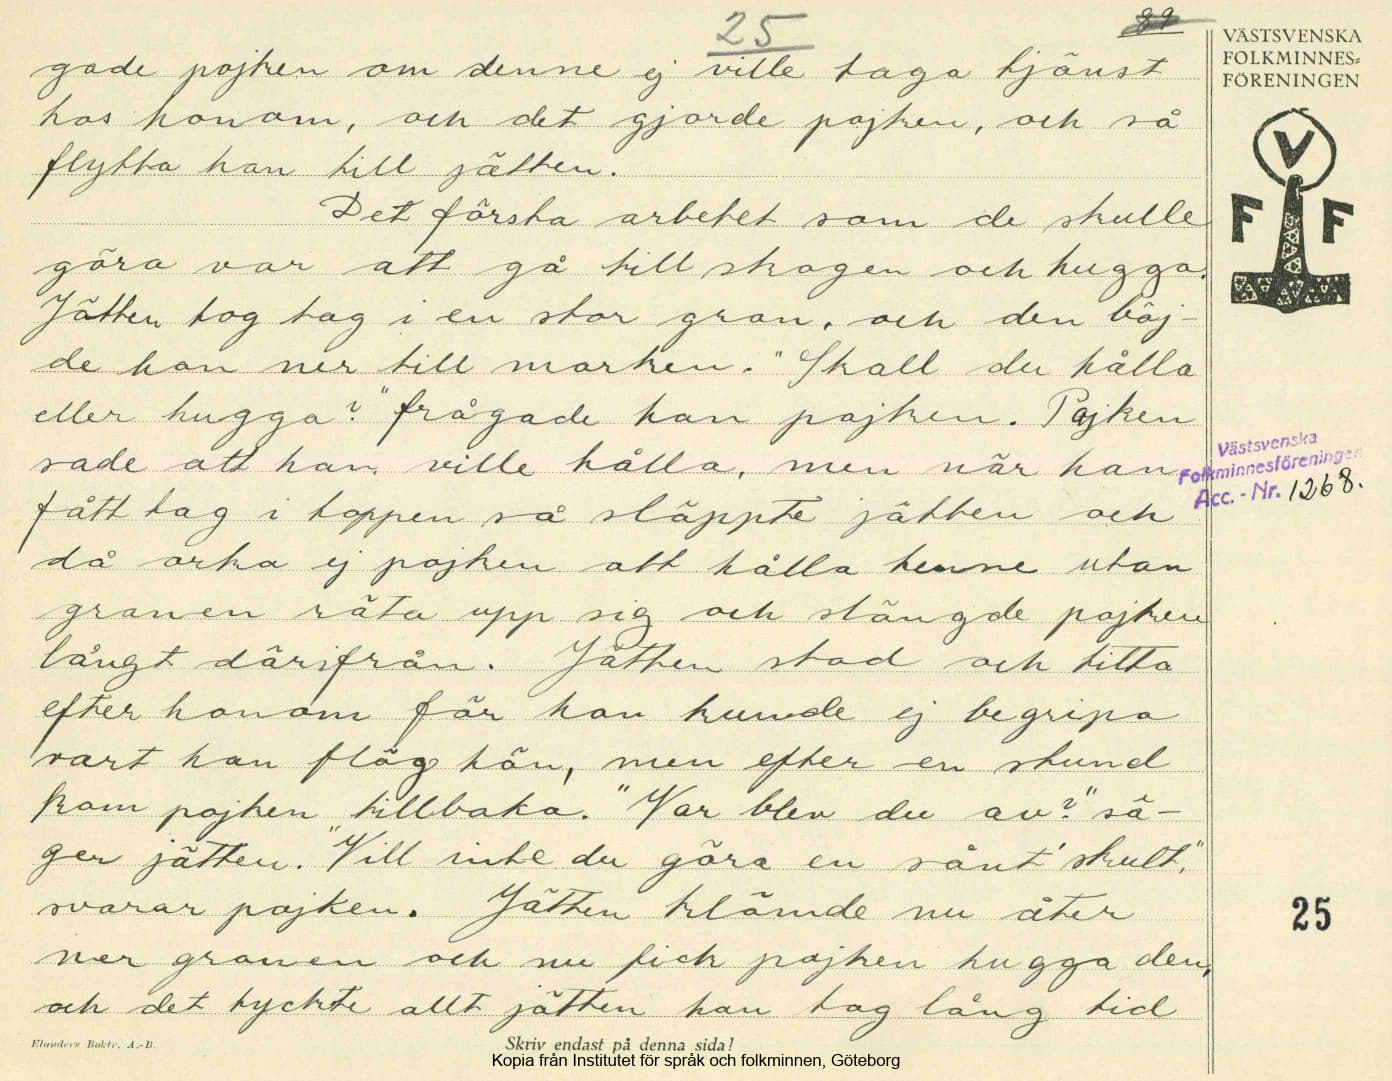 25
89
gade pojken om denne ej ville taga tjänst
hos honom, och det gjorde pojken, och så
flytta han till jätten.
Det första arbetet som de skulle
göra var att gå till skogen och hugga.
Jätten tog tag i en stor gran, och den böj-
de han ner till marken. "Skall du hålla
eller hugga?" frågade han pojken. Pojken
sade att han ville hålla, men när han
fått tag i toppen så släppte jätten och
då orka ej pojken att hålla henne utan
granen räta upp sig och slängde pojken
långt därifrån. Jätten stod och titta
efter honom för han kunde ej begripa
vart han flög hän, men efter en stund
kom pojken tillbaka. "Var blev du av?" sä-
ger jätten. "Vill inte du göra en sånt skutt,"
svarar pojken. Jätten klämde nu åter
ner granen och nu fick pojken hugga den,
och det tyckte allt jätten han tog lång tid
VÄSTSVENSKA
FOLKMINNES-
FÖRENINGEN
V
F F
Västsvenska
Folkminnesföreningen
Acc. - Nr. 1268.
25
Elanders Boktr. A.-B.
Skriv endast på denna sida!
Kopia från Institutet för språk och folkminnen, Göteborg